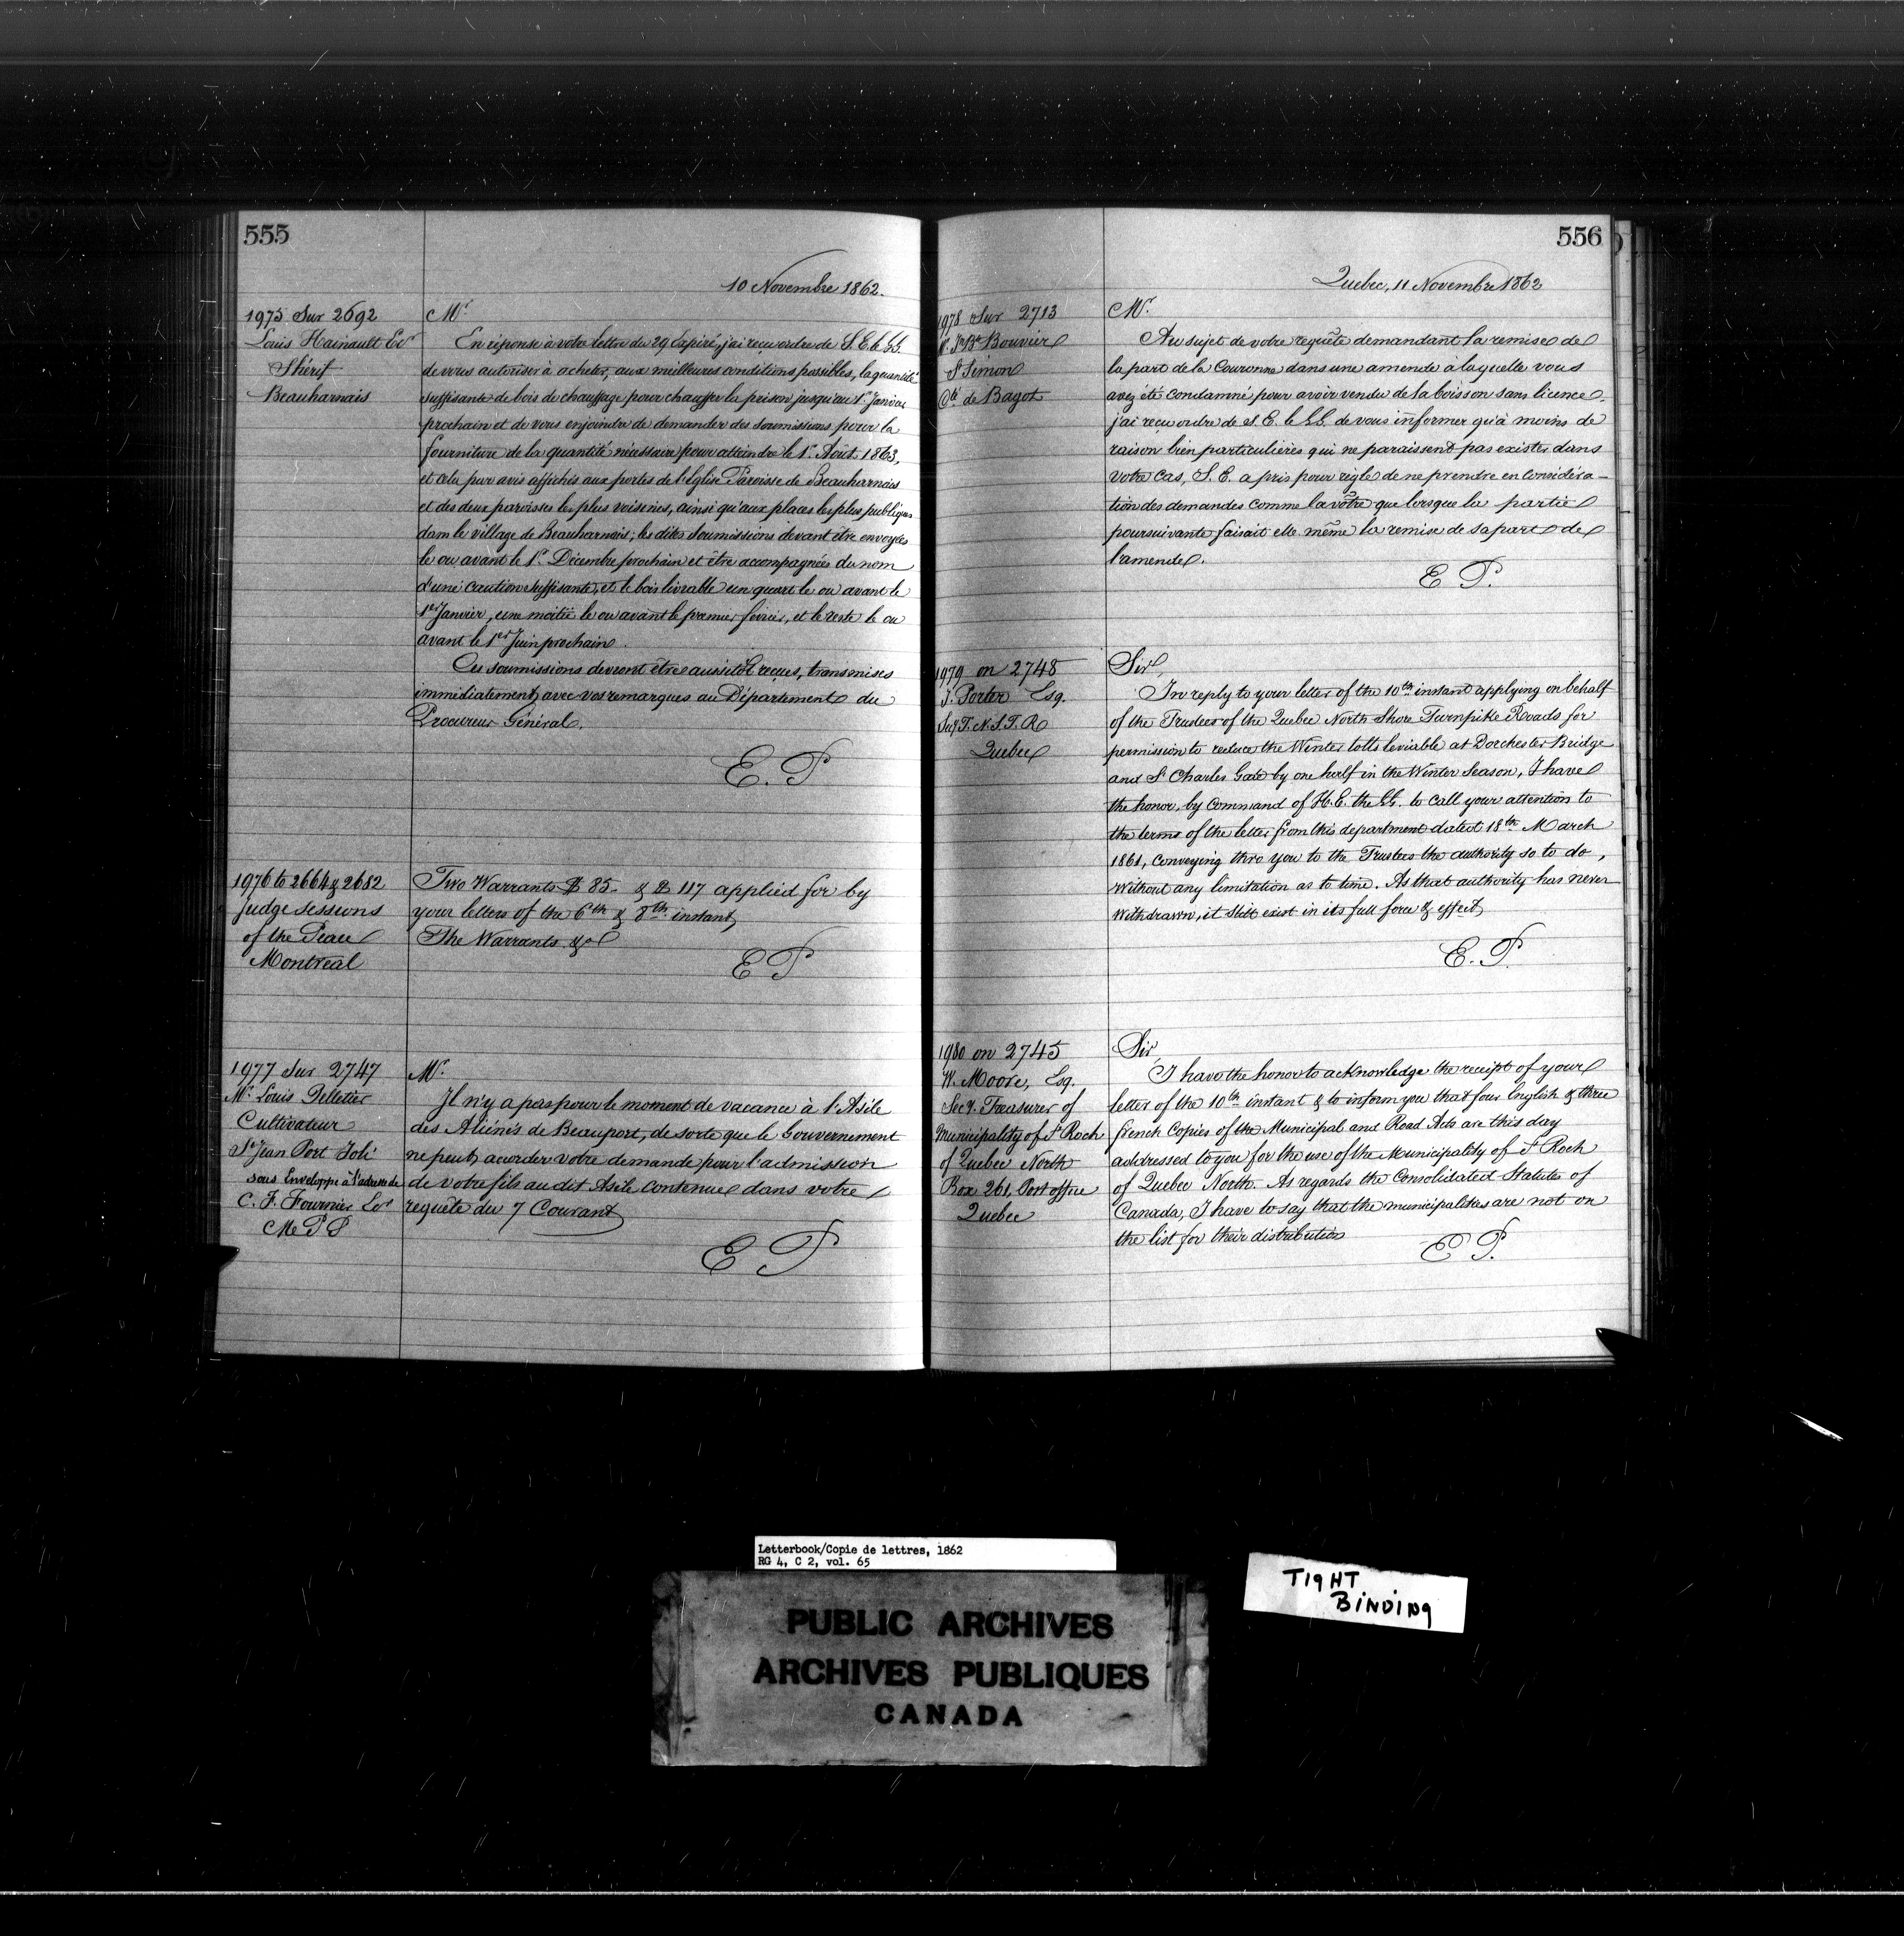 555
10 Novembre 1862.
1975 Sur 2692
Louis Hainault Ecr
Shérif
Beauharnais
Mr.
En réponse à votre lettre du 29 Expiré, j'ai reçu ordre de S. E. le GG.
de vous autoriser à acheter, aux meilleures conditions possibles, la quantité
suffisante de bois de chauffage pour chauffer la prison jusqu'au 1er Janvier
prochain et de vous enjoindre de demander des soumissions pour la
fourniture de la quantité nécessaire pour atteindre le 1er Août 1863,
et cela par avis affichés aux portes de l'Eglise Paroisse de Beauharnais
et des deux paroisses les plus voisines, ainsi qu'aux places les plus publiques
dans le village de Beauharnais; les dites soumissions devant être envoyées
le ou avant le 1er. Décembre prochain et être accompagnées du nom
d'une caution suffisante, et le bois livrable un quart le ou avant le
1er Janvier, une moitié le ou avant le premier février, et le reste le ou
avant le 1er Juin prochain.
Ces soumissions devront être aussitôt reçues, transmises
immédiatement avec vos remarques au Département du
Procureur Général.
E. P
1976 to 2664 & 2682
Judge sessions
of the Peace
Montreal
Two Warrants $ 85. & $ 117 applied for by
your letters of the 6th & 8th. instant,
The Warrants &c
E P
1977 Sur 2747
Mr. Louis Pelletier
Cultivateur
St Jean Port Joli
sous Enveloppe à l'adresse de
C. F. Fournier Ecr
M P P
Mr.
Il n'y a pas pour le moment de vacance à l'Asile
des Aliénés de Beauport, de sorte que le Gouvernement
ne peut accorder votre demande pour l'admission
de votre fils au dit Asile contenue dans votre
requête du 7 Courant
E P
556
Quebec, 11 Novembre 1862
1978 Sur 2713
Mr. Jn Bte Bouvier
St Simon
Cté de Bagot
Mr.
Au sujet de votre requête demandant la remise de
la part de la Couronne dans une amende à laquelle vous
avez été condamné pour avoir vendu de la boisson sans licence,
j'ai reçu ordre de S. E. le GG. de vous informer qu'à moins de
raison bien particulières qui ne paraissent pas exister dans
votre cas, S. E. a pris pour règle de ne prendre en considéra-
tion des demandes comme la vôtre que lorsque la partie
poursuivante faisait elle même la remise de sa part de
l'amende.
E P.
1979 on 2748
J. Porter Esq.
Secy T. N. S. T. R
Quebec
Sir,
In reply to your letter of the 10th instant applying on behalf
of the Trustees of the Quebec North Shore Turnpike Roads for
permission to reduce the Winter tolls leviable at Dorchester Bridge
and St Charles Gate by one half in the Winter Season, I have
the honor, by command of H. E. the GG. to call your attention to
the terms of the letter from this department dated 18th March
1861, conveying thro you to the Trustees the authority so to do,
without any limitation as to time. As that authority has never
withdrawn, it still exist in its full force & effect
E. P.
1980 on 2745
W. Moore, Esq.
Secy. Treasurer of
Municipality of St Roch
of Quebec North
Box 261, Post office
Quebec
Sir,
I have the honor to acknowledge the receipt of your
letter of the 10th instant & to inform you that four English & three
french Copies of the Municipal and Road Acts are this day
addressed to you for the use of the Municipality of St Roch
of Quebec North. As regards the Consolidated Statutes of
Canada, I have to say that the municipalities are not on
the list for their distribution
E P.
Letterbook/Copie de lettres, 1862
RG 4, C 2, vol. 65
TIGHT
BINDING
PUBLIC ARCHIVES
ARCHIVES PUBLIQUES
CANADA